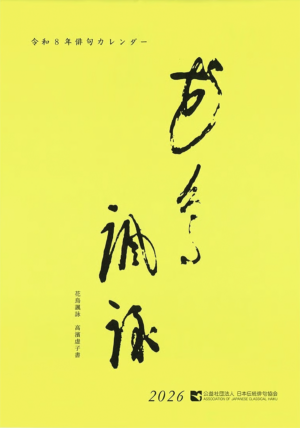 令和8年俳句カレンダー
花鳥
諷詠
花鳥諷詠 高濱虚子書
2026
公益社団法人 日本伝統俳句協会
ASSOCIATION OF JAPANESE CLASSICAL HAIKU